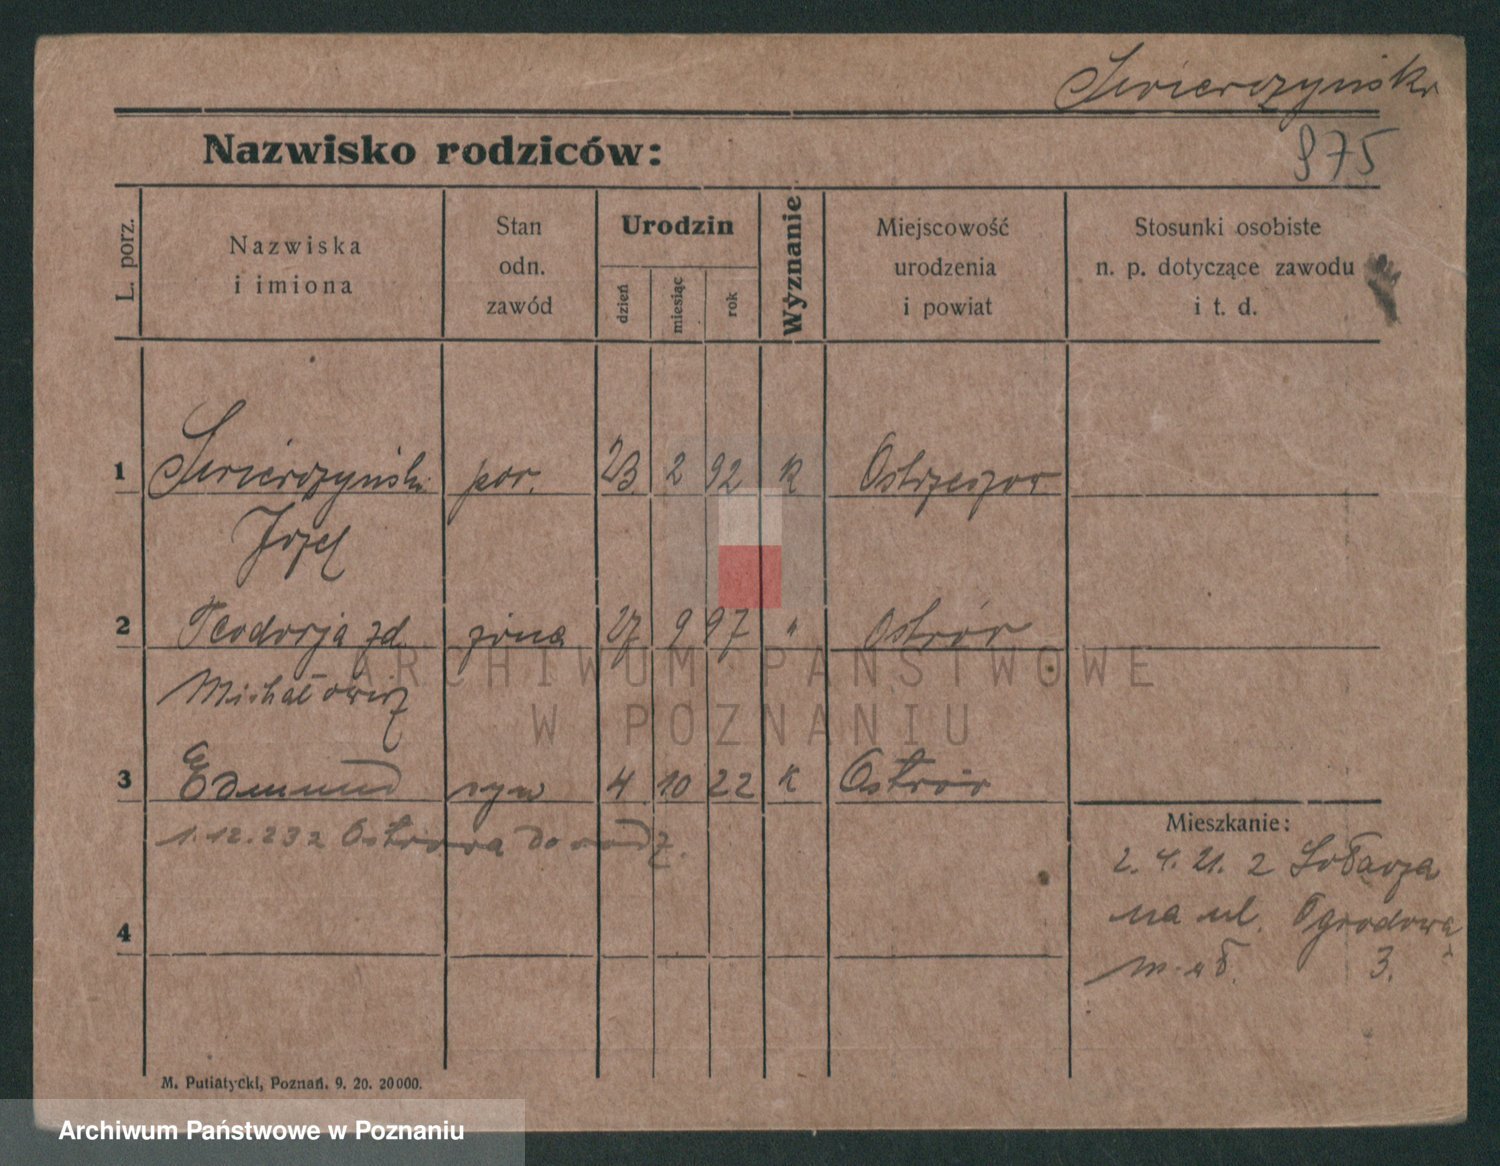 Swierczyński
975
Nazwisko rodziców:
L. porz.
Nazwiska
i imiona
Stan
odn.
zawód
Urodzin
dzień
miesiąc
rok
Wyznanie
Miejscowość
urodzenia
i powiat
Stosunki osobiste
n. p. dotyczące zawodu
i t. d.
1 Swierczyński por. 23 2 92 K Ostrzeszów
Józef
2 Teodorja zd. żona 27 9 97 " Ostrów
Michałowicz
3 Edmund syn 4 10 22 K Ostrów
1.12.23 z Ostrowa do rodz.
4
Mieszkanie:
2. 4. 21. z Sołacza
na ul. Ogrodową
3.
M. Putiatycki, Poznań. 9. 20. 20000.
ARCHIWUM PAŃSTWOWE
W POZNANIU
Archiwum Państwowe w Poznaniu